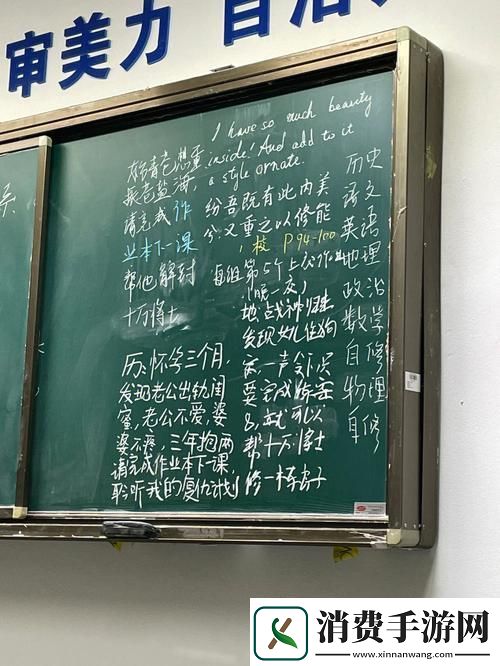 审美力 自治
I have so much beauty
inside! And add to it
a style ornate.
纷吾既有此内美
兮,又重之以修能
请完成作
业本下一课
帮他解封
十万将士
校 P94-100
每组第5个上交作业
(眼一衣)
地战神归胜
发现奶性狗
一声令
要完成
8,就可以
帮十万将士
修一栋房子
历:怀孕三个月,
发现老公出轨闺
蜜,老公不爱,婆
婆不疼,三年抱两
请完成作业本下一课,
聆听我的复仇计划
历史
语文
英语
地理
政治
数学
自修
物理
自修
消费手游网
www.xinnanwang.com